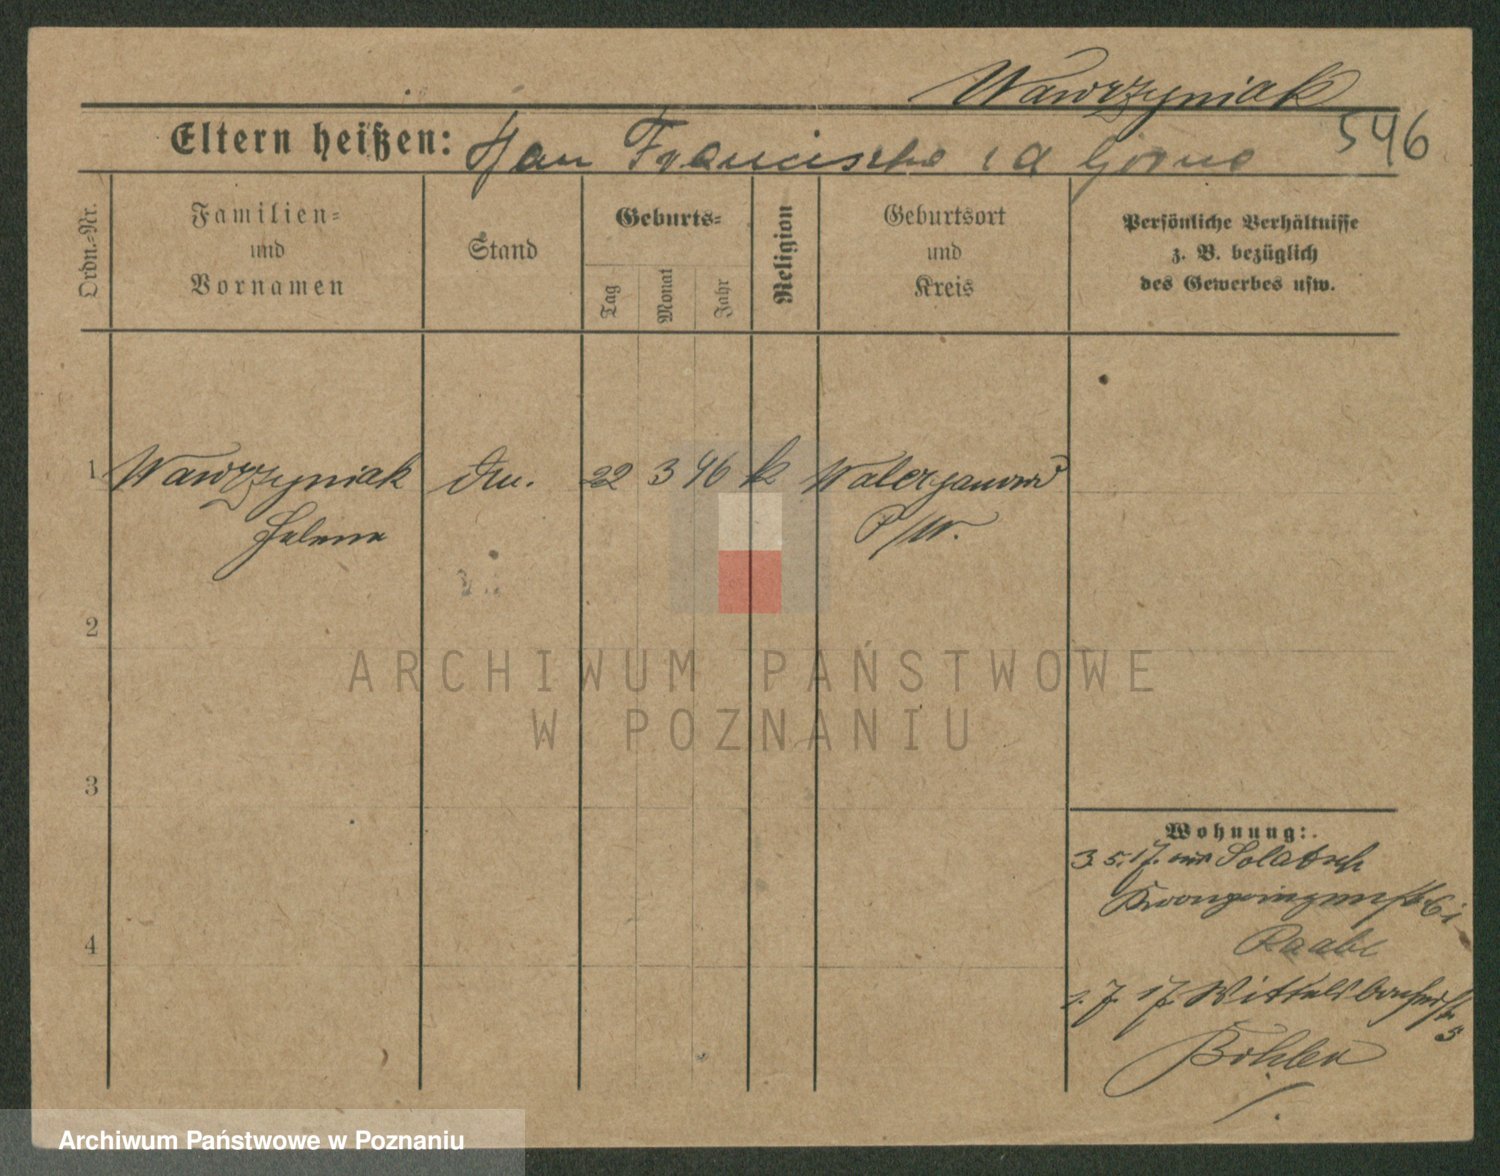 Wawrzyniak
546
Eltern heißen: Jan Franciszka
Ordn.-Nr.
Familien-
und
Vornamen
Stand
Geburts-
Tag
Monat
Jahr
Religion
Geburtsort
und
Kreis
Persönliche Verhältnisse
z. B. bezüglich
des Gewerbes usw.
1 Wawrzyniak 22 3 96 k
Helena
P/W.
2
ARCHIWUM PAŃSTWOWE
W POZNANIU
3
Wohnung:
3.5.17. Solatsch
4
Raabe
1.7.17. Wittelsbacherstr
5
Böhler
Archiwum Państwowe w Poznaniu